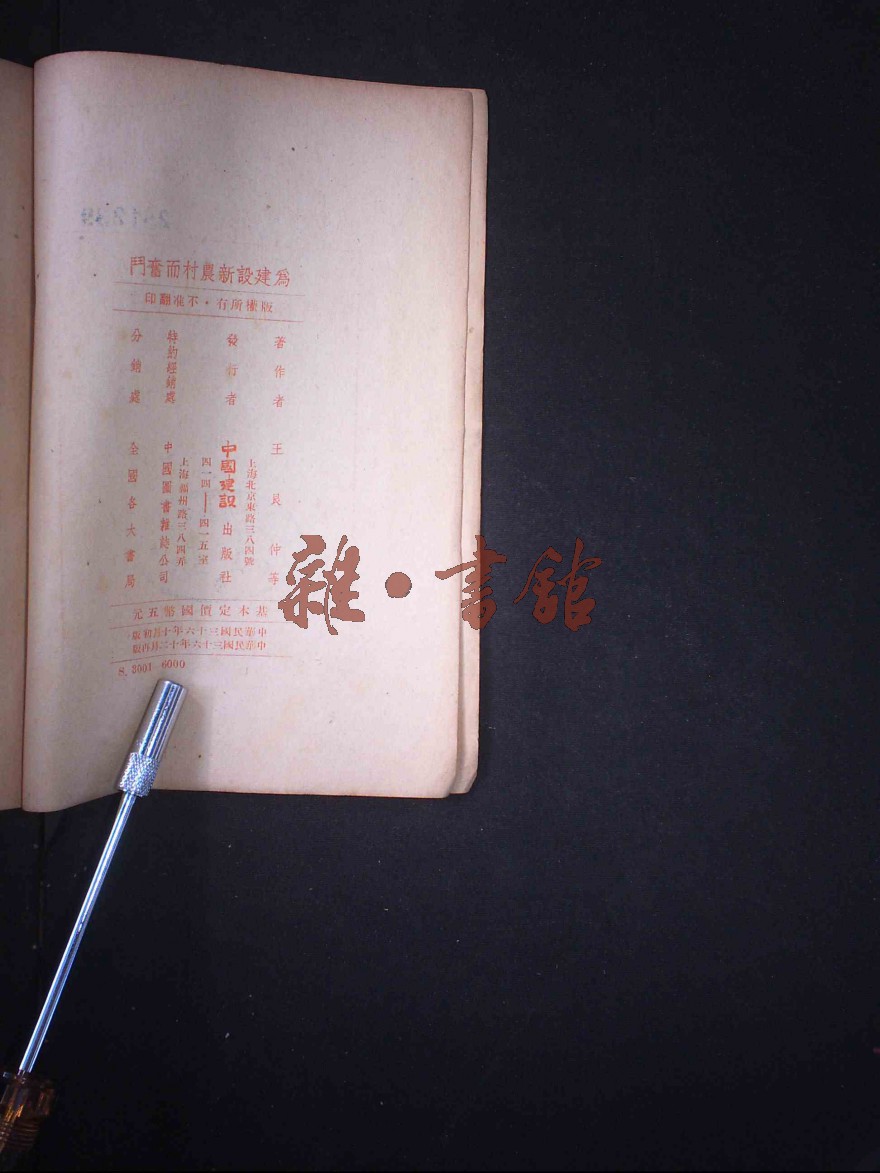 為建設新農村而奮鬥
版權所有・不准翻印
著作者 王艮仲等
發行者 中國建設出版社
上海北京東路三八四號
四一四——四一五室
特約經銷處 中國圖書雜誌公司
上海福州路三八四弄
分銷處 全國各大書局
基本定價國幣五元
中華民國三十六年十月初版
中華民國三十六年十二月再版
S. 3001—6000
雜・書館